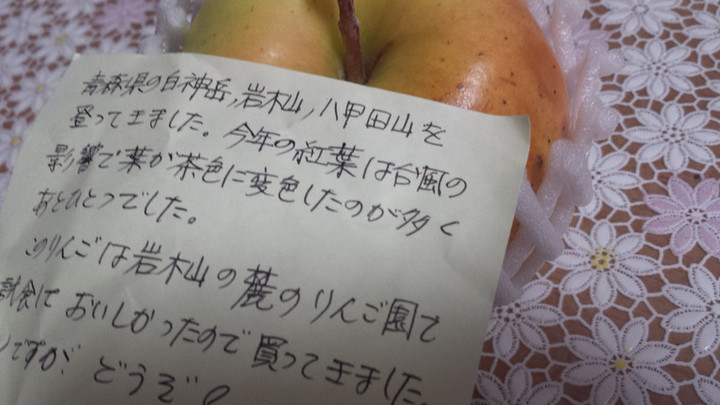 青森県の白神岳,岩木山,八甲田山を
登ってきました。今年の紅葉は台風の
影響で葉が茶色に変色したのが多く
あとひとつでした。
このりんごは岩木山の麓のりんご園で
試食して おいしかったので 買ってきました。
ですが、どうぞ